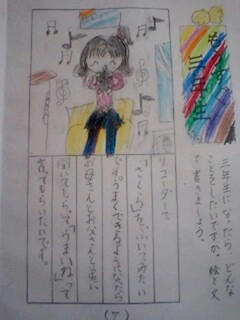 もうすぐ
三年生
三年生になったら、どんな
ことをしたいですか。絵と文
で書きましょう。
リコーダーで
「さくら」を、ふいてみたい
です。うまくできるようになったら
お母さんとお父さんと弟に
聞いてもらって、「うまいね」って
言ってもらいたいです。
(7)